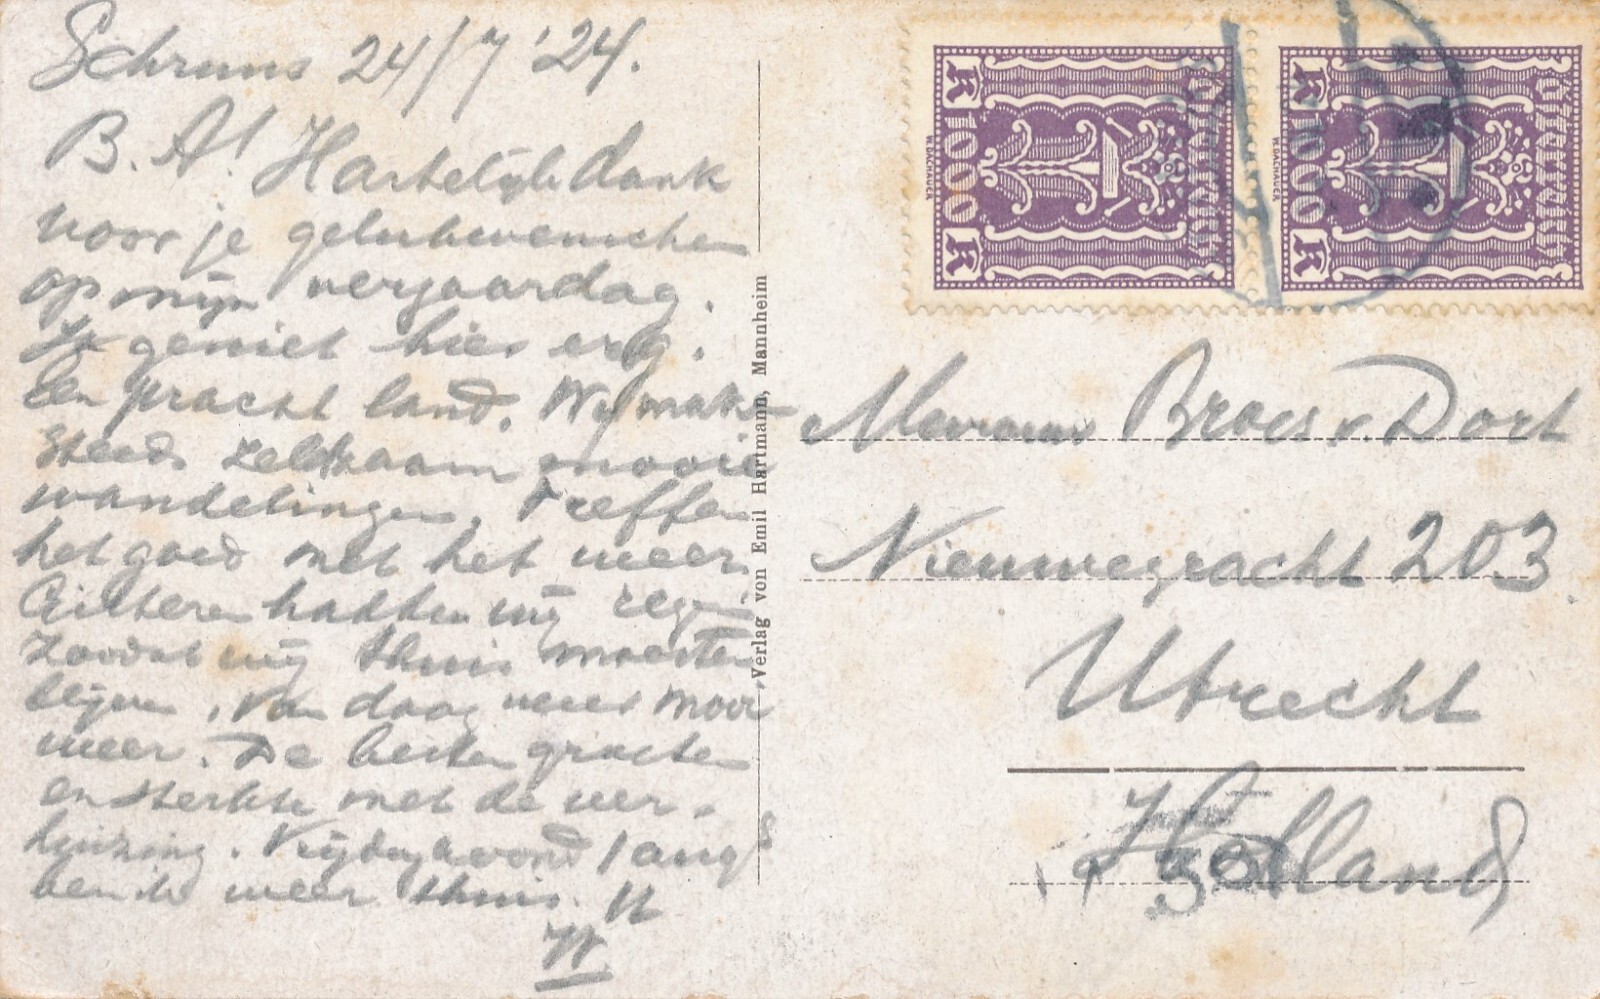 Schruns 24/7 '24.
B. A! Hartelijk dank
voor je gelukwenschen
op mijn verjaardag.
Ik geniet hier erg.
Een pracht land. Wij maken
steeds zeldzaam mooie
wandelingen, treffen
het goed met het weer.
Gisteren hadden wij regen
zoodat wij thuis moesten
blijven, van daag weer mooi
weer. De beste groeten
en sterkte met de ver-
huizing. Vrijdagavond
ben ik weer thuis.
Verlag von Emil Hartmann, Mannheim
K 1000 K
W. DACHAUER
K 1000 K
W. DACHAUER
Mevrouw Broers v. Dort
Nieuwegracht 203
Utrecht
Holland